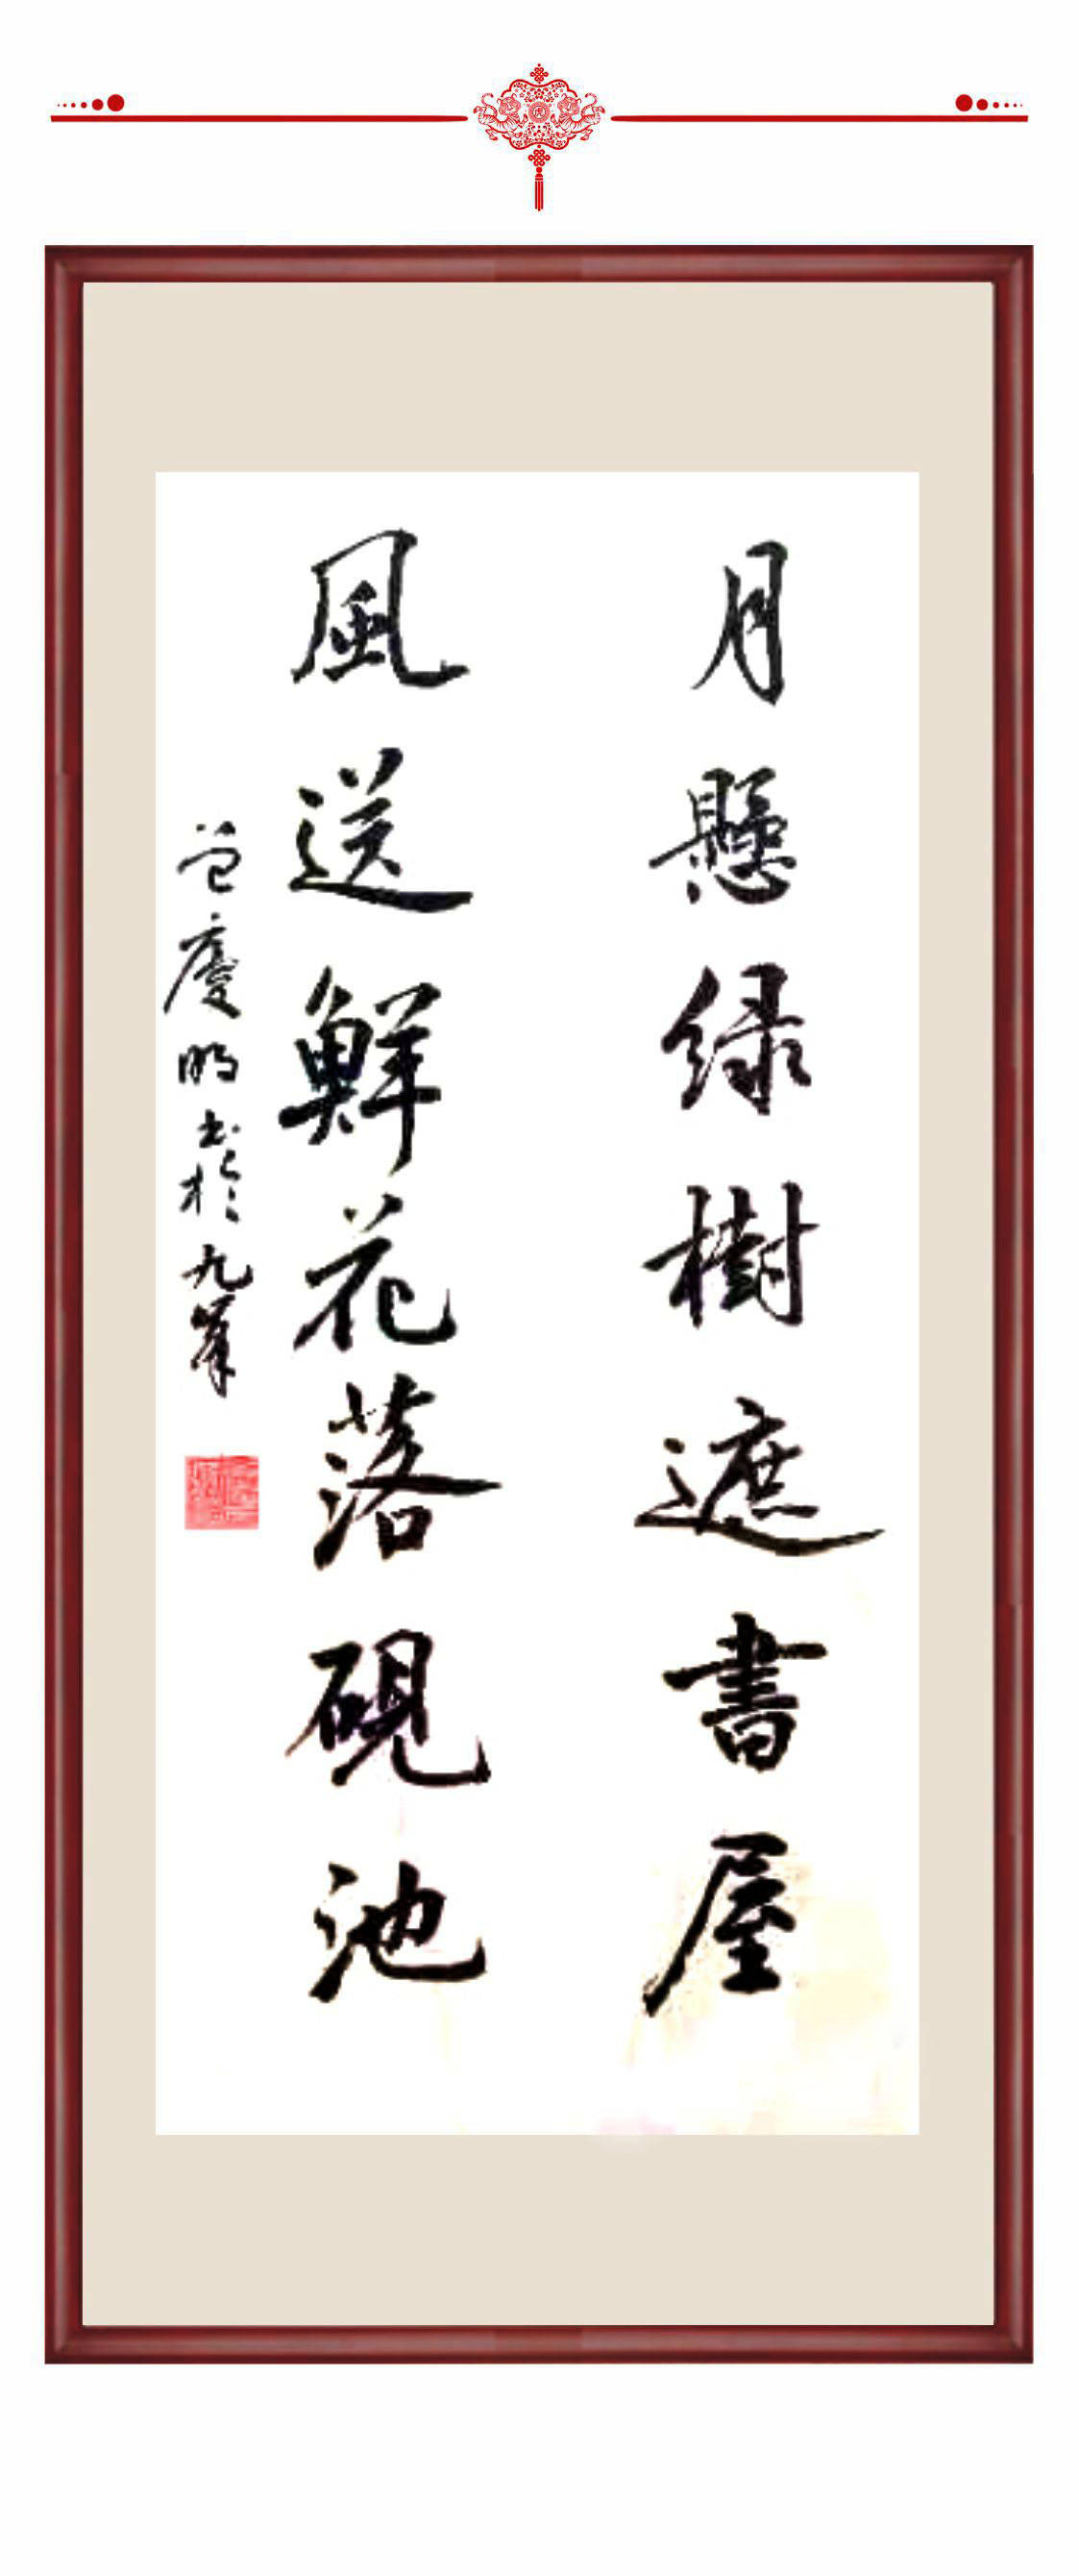 月懸绿樹遮書屋
風送鮮花落硯池
曾慶明书於九峯